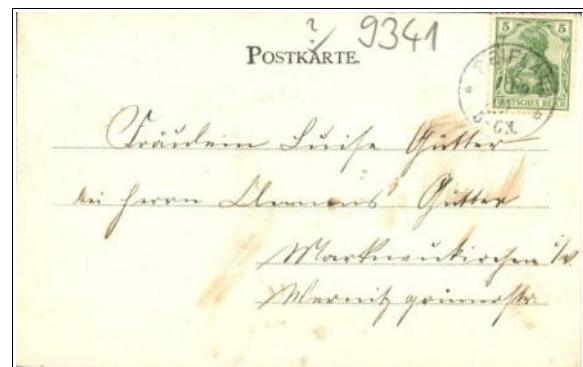 ? 9341
POSTKARTE.
5 5
DEUTSCHES REICH
Fräulein Luise Gütter
bei Herrn Clemens Gütter
Markneukirchen i/V.
Wernitzgrünerstr.